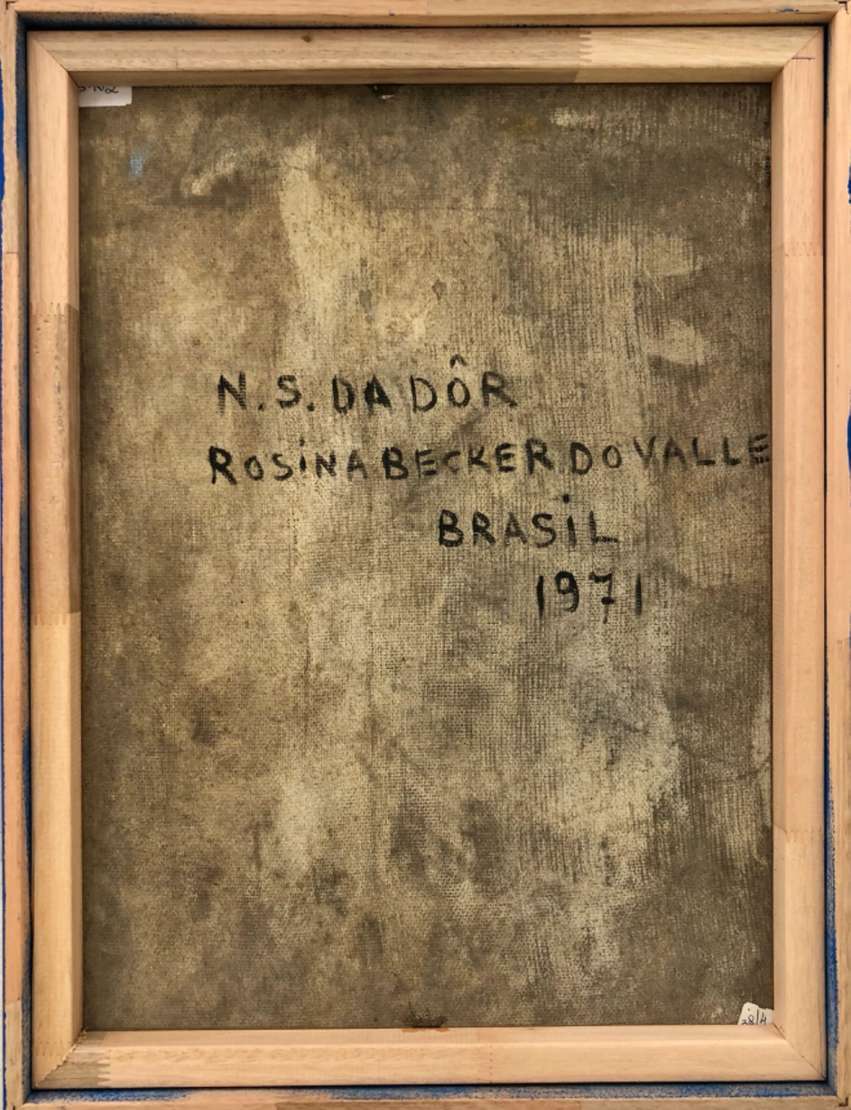 N.S. DA DÔR
ROSiNA BECKER DO VALLE
BRASiL
1971